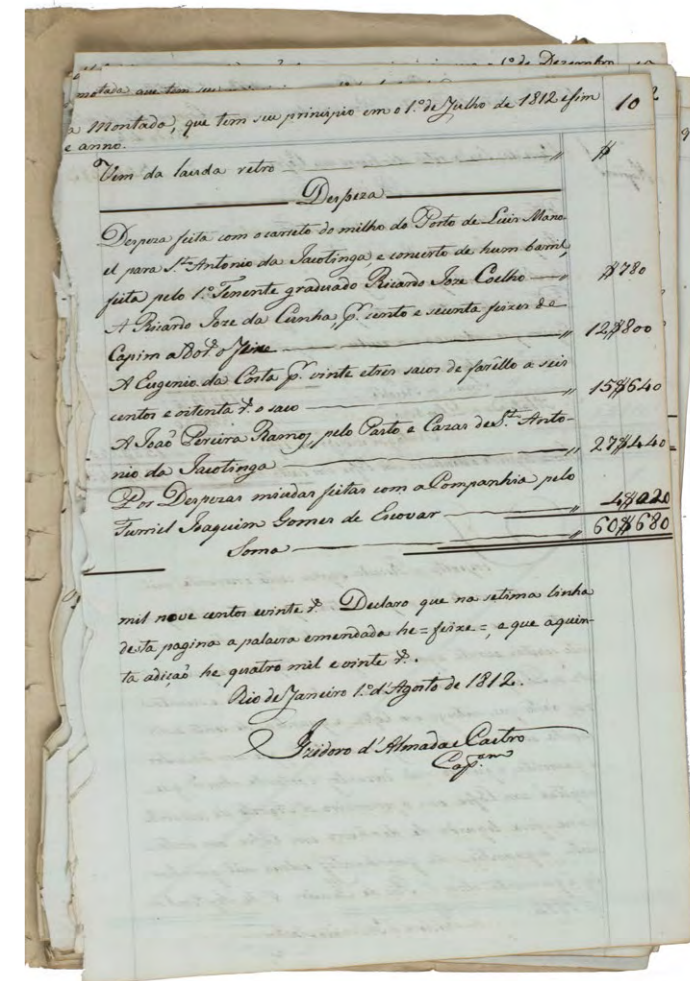 1º de Dezembro
motada que tem seu
a Montada, que tem seu principio em o 1º. de Julho de 1812 e fim 10
e anno.
Vem da lauda retro — " $
Despeza
Despeza feita com o carreto do milho do Porto de Luis Mano-
el para S.to Antonio da Jacotinga, e concerto de hum barril,
feita pelo 1º. Tenente graduado Ricardo Joze Coelho — " $780
A Ricardo Joze da Cunha, p.r cento e secenta feixes de
Capim a 80 r.s o feixe — " 12$800
A Eugenio da Costa p.r vinte e tres sacos de farello a seis
centos e oitenta r.s o saco — " 15$640
A João Pereira Ramos, pelo Pasto e Cazas de S.to Anto-
nio da Jacotinga — " 27$440
Por Despezas miudas feitas com a Companhia pelo
Furriel Joaquim Gomes de Escovar — " 4$020
Soma — " 60$680
mil nove centos e vinte r.s Declaro que na setima linha
desta pagina a palavra emendada he = feixe =, e que a quin-
ta adição he quatro mil e vinte r.s.
Rio de Janeiro 1º. d'Agosto de 1812.
Izidoro d'Almada e Castro
Cap.am